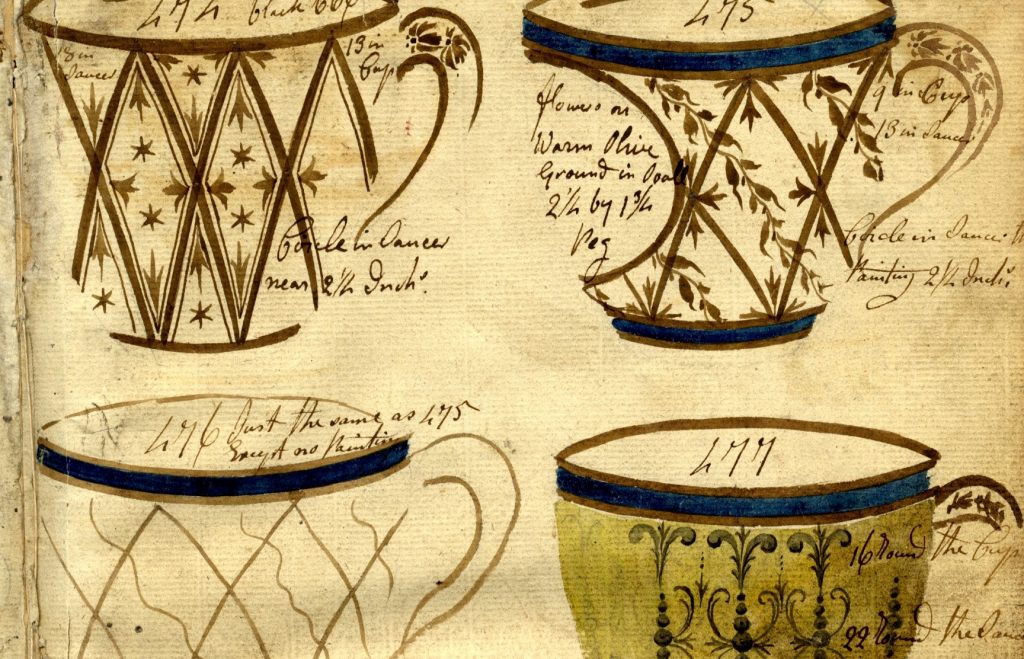 474 black Edge
13 in
Saucer
13 in
Cup
Circle in Saucer
near 2 1/4 Inchs.
475
flowers on
Warm Olive
Ground in
2 1/4 by 1 3/4
Peg
9 in Cup
13 in Saucer
Circle in Saucer
Painting 2 1/4 Inchs
476 Just the same as 475
Except no Painting
477
16 Round the Cup
22 Round the Saucer